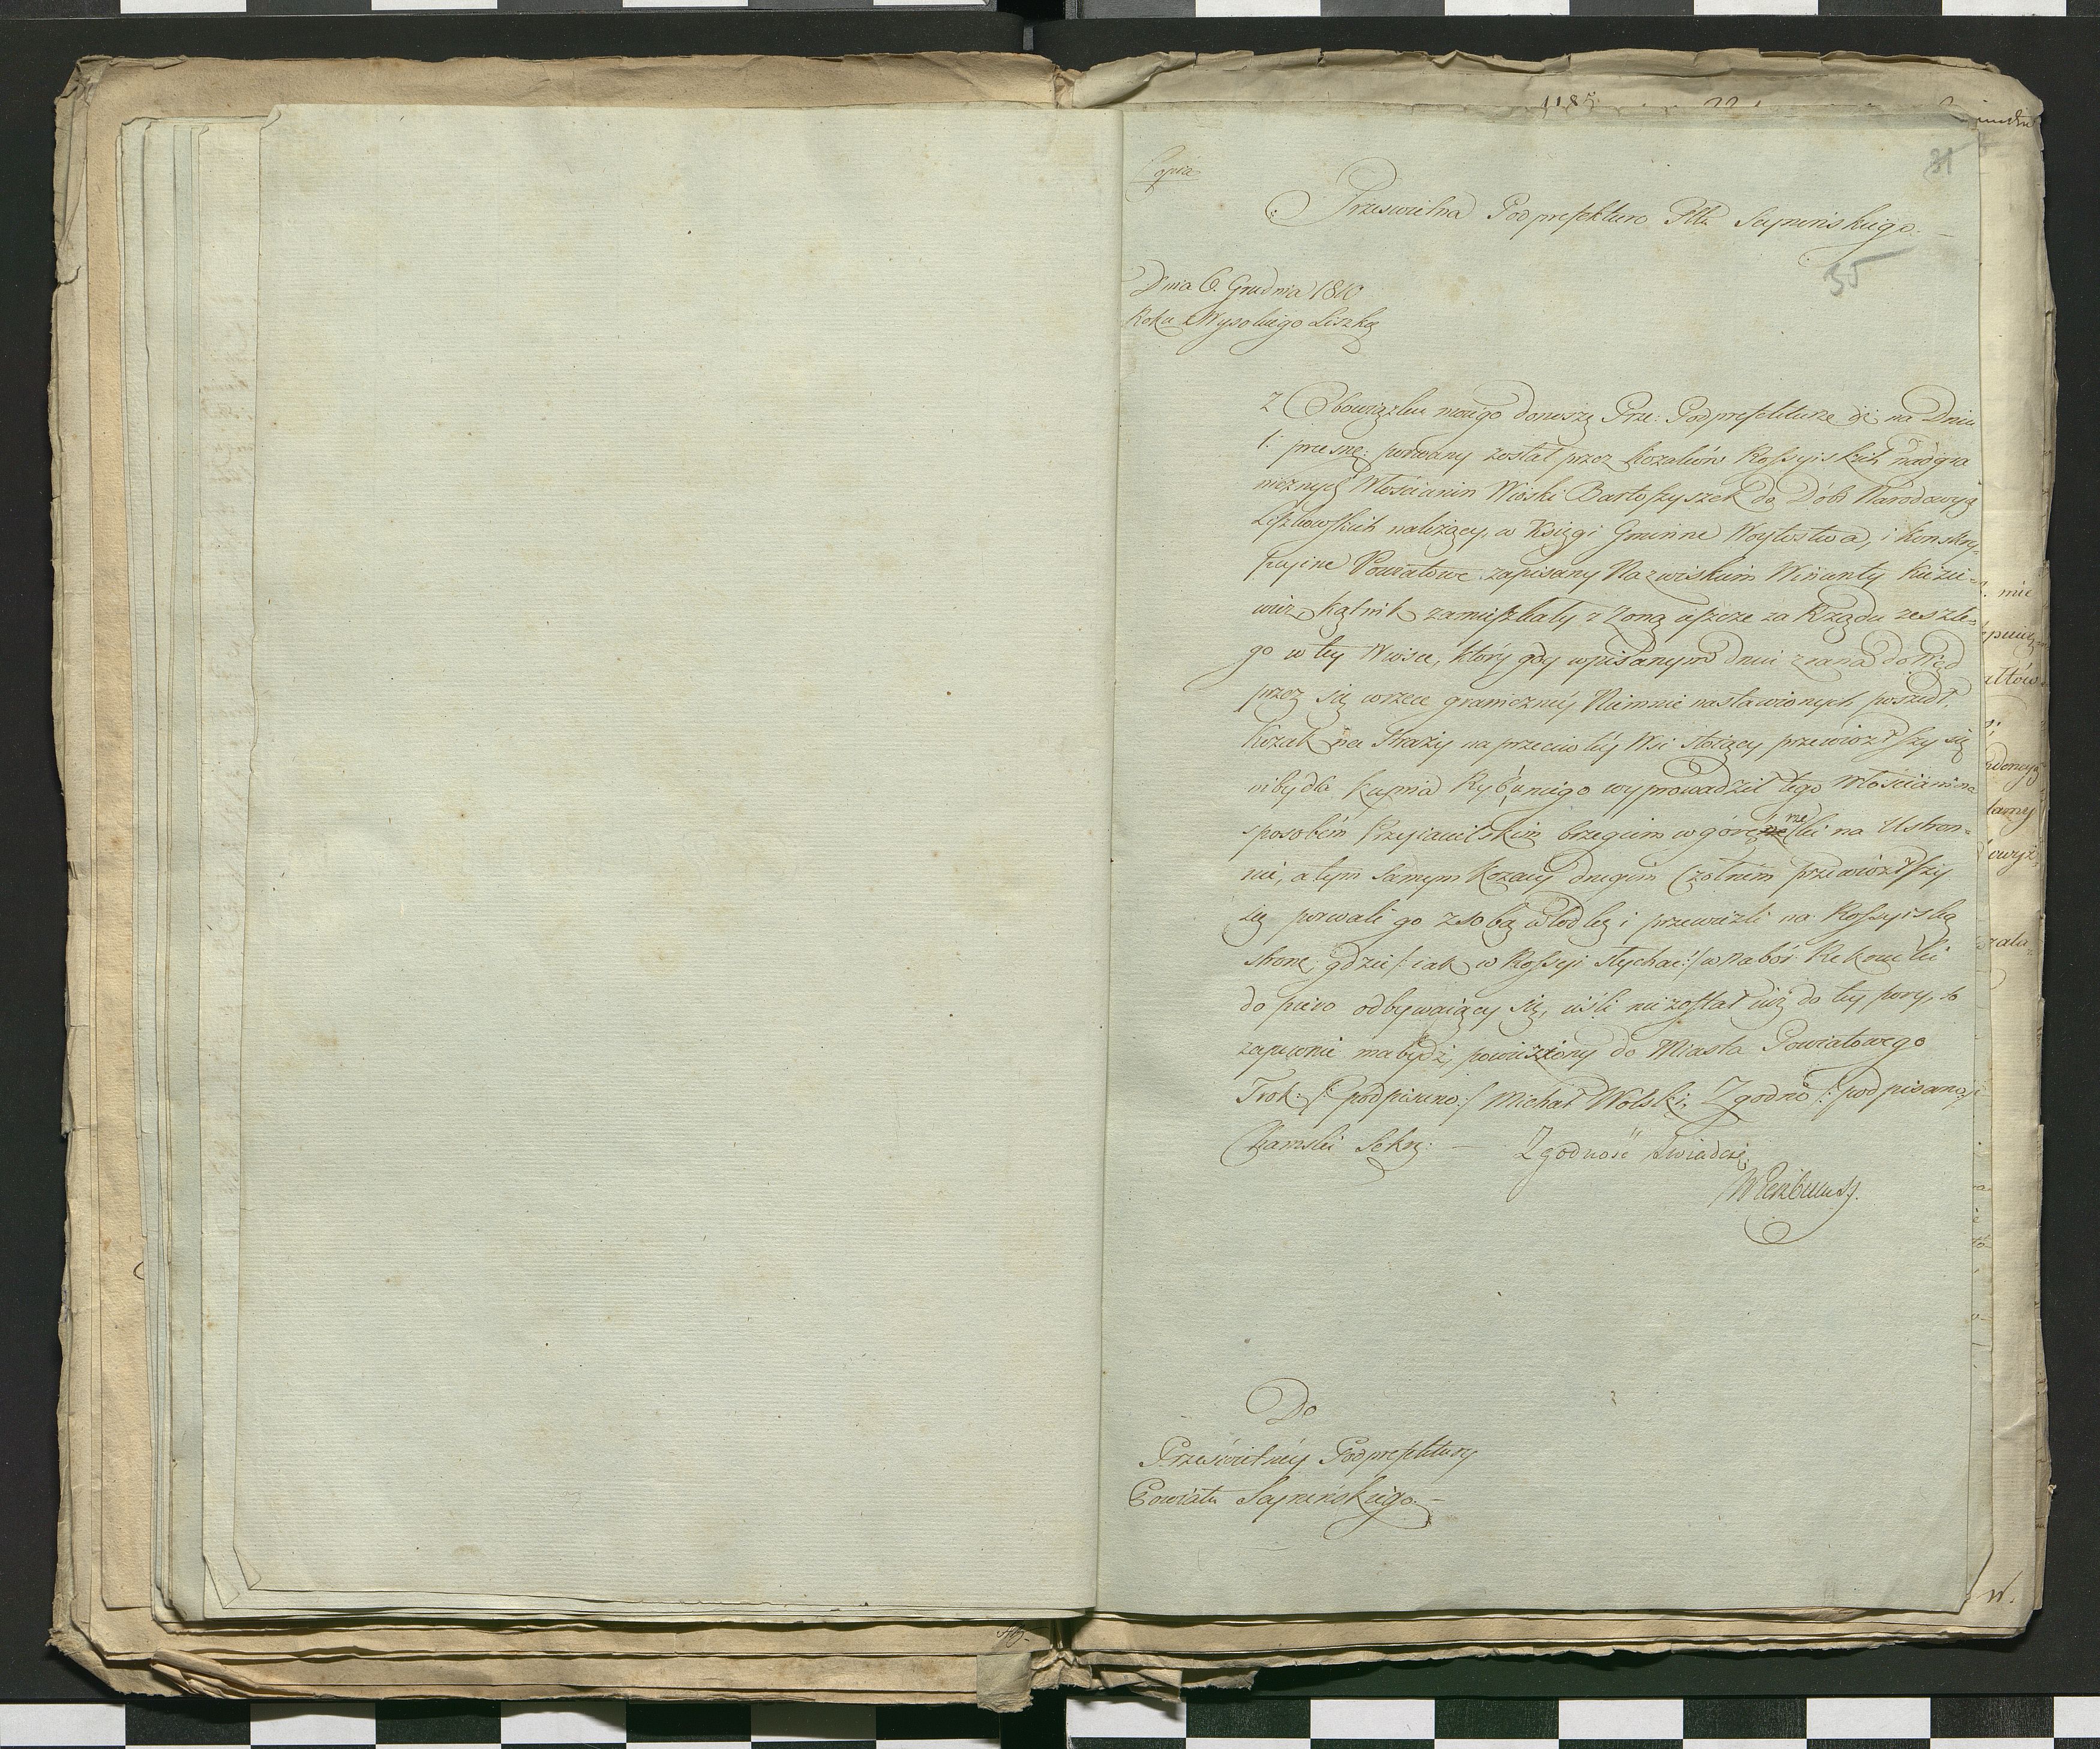 Copia
31
Prześwietna Podprefekturo Pttu Seyneńskiego.
35
Dnia 6. Grudnia 1810
Roku z Wysokiego Liszką
Z Obowiązku moiego donoszę Prze: Podprefekturze iż na Dniu
1. porwany został przez Kozaków Rossyiskich nadgra
nicznych Włościanin Wioski Bartoszyszek do Dóbr Narodowych
Liszkowskich należący, w Księgi Gminne Woytostwa, i konskry,
pcyine Powiatowe zapisany Nazwiskiem Wincenty
kątnik zamieszkały z Żoną ieszcze za Rządu zeszłe=
go w tey Wiosce, który gdy wpisanym dniu zrana do Węd
przez się w rzece graniczney Niemnie nastawionych poszedł,
Kozak na Straży na przeciw tey Wsi stoiący przewiozłszy się
niby dla kupna Ryb u niego wyprowadził tego Włościanina
sposobem Przyiacielskim brzegiem w górę rzeki na Ustron=
nie, a tym samym Kozacy drugim Czołnem przewiozłszy
się porwali go z sobą w łodkę i przewieźli na Rossyiską
stronę, gdzie /: iak w Rossyi słychać :/ w nabór Rekrucki
do piero odbywaiący się, ieśli nie został iuż do tey pory, to
zapewnie ma bydź powieziony do Miasta Powiatowego
Trok. /: podpisano :/ Michał Wolski, Zgodno /: podpisano :/
Czamski Sekre: — Zgodność świadczę
Do
Prześwietney Podprefektury
Powiatu Seyneńskiego.—